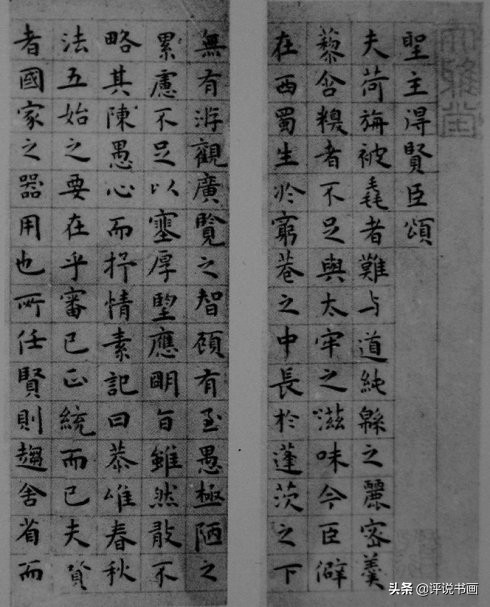 聖主得賢臣頌
夫荷旃被毳者難与道純緜之麗密羹
藜含糗者不足與太牢之滋味今臣僻
在西蜀生於窮巷之中長於蓬茨之下
無有游觀廣覽之智顧有至愚極陋之
累慮不足以塞厚望應明旨雖然敢不
略其陳愚心而抒情素記曰恭惟春秋
法五始之要在乎審己正統而已夫賢
者國家之器用也所任賢則趨舍省而
头条 @评说书画